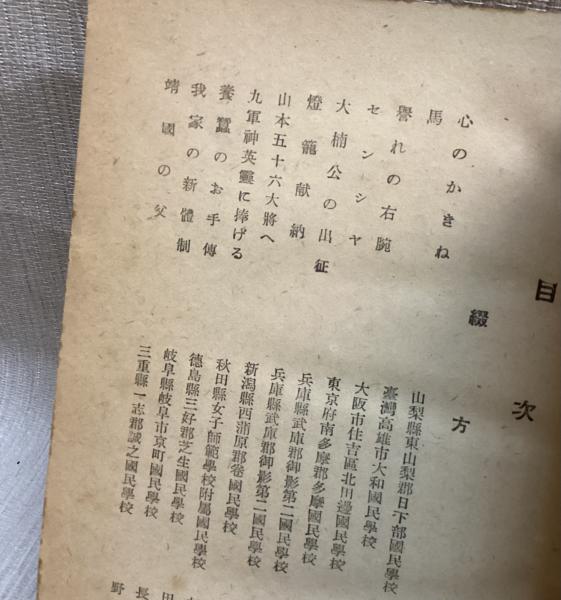 目次
綴方
心のかきね
馬
譽れの右腕
センシヤ
大楠公の出征
燈籠献納
山本五十六大將へ
九軍神英靈に捧げる
養蠶のお手傳
我家の新體制
靖國の父
山梨縣東山梨郡日下部國民學校
臺灣高雄市大和國民學校
大阪市住吉區北田邊國民學校
東京府南多摩郡多摩國民學校
兵庫縣武庫郡御影第二國民學校
兵庫縣武庫郡御影第二國民學校
新潟縣西蒲原郡卷國民學校
秋田縣女子師範學校附屬國民學校
德島縣三好郡芝生國民學校
岐阜縣岐阜市京町國民學校
三重縣一志郡誠之國民學校
田
長
野